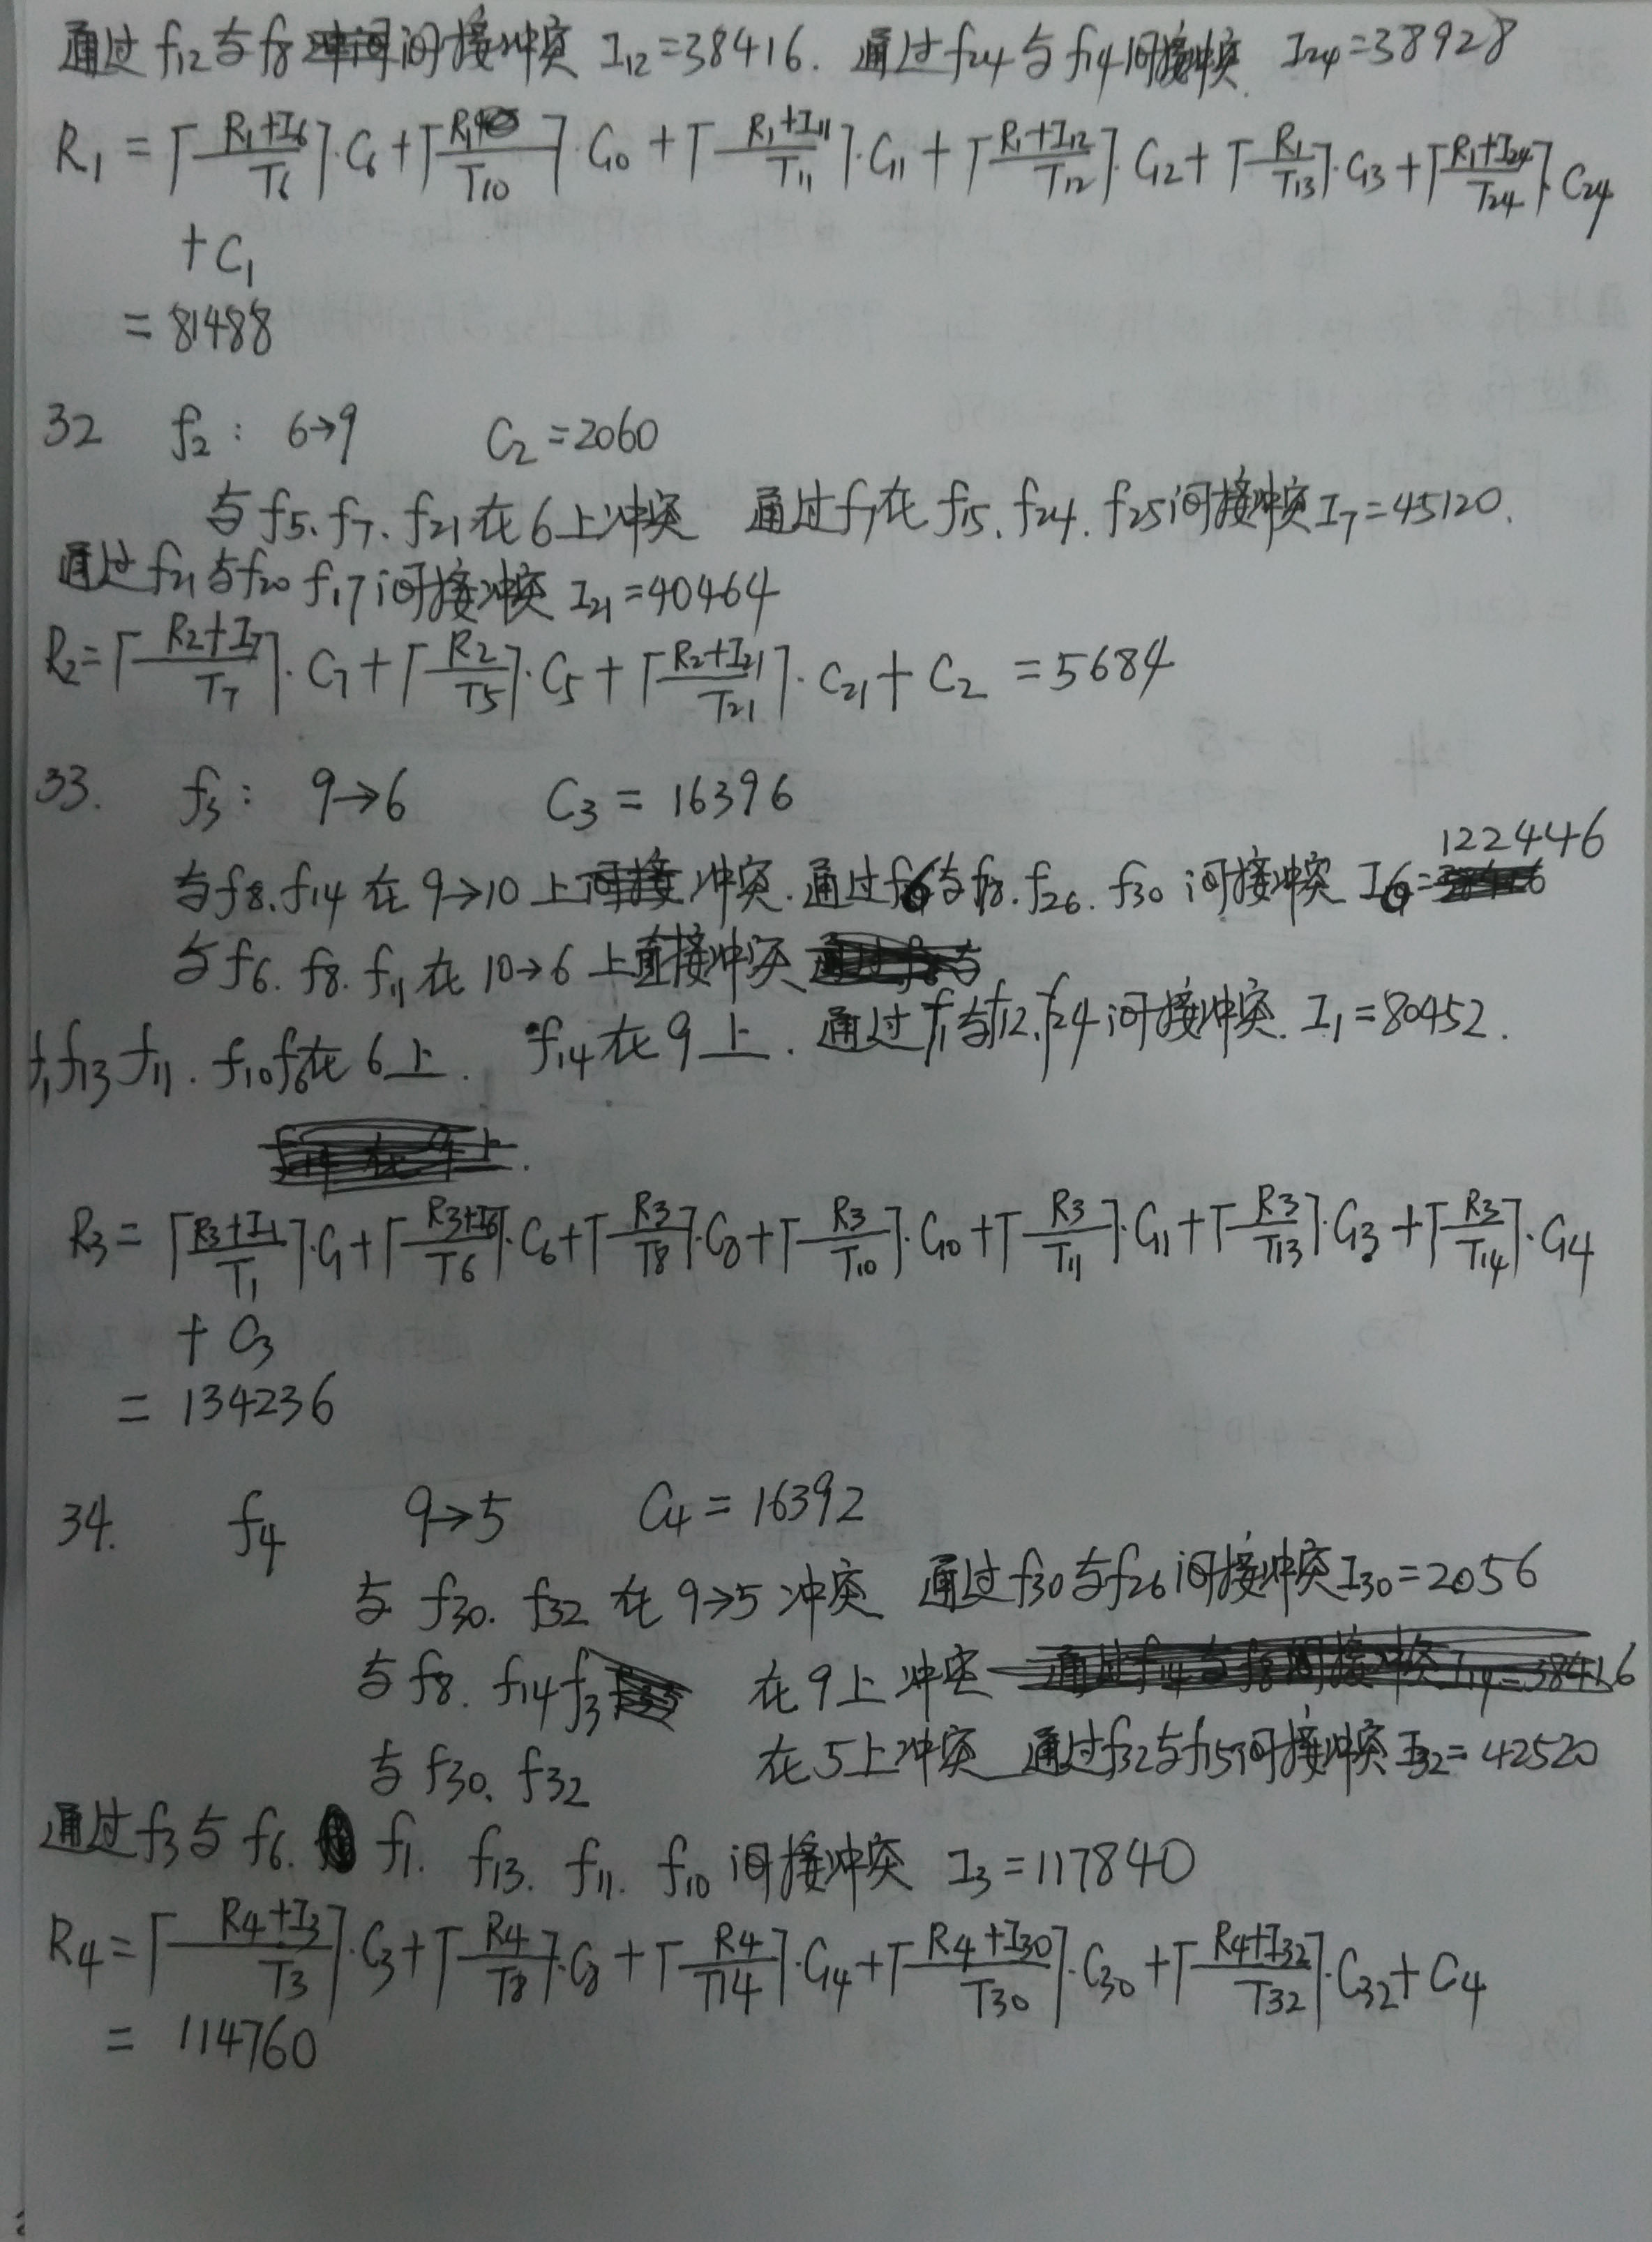 通过f12与f8间接冲突 I12=38416. 通过f24与f14间接冲突. I24=38928
R1 = ⌈(R1+I6)/T6⌉·C6+⌈R1/T10⌉·C10+⌈(R1+I11)/T11⌉·C11+⌈(R1+I12)/T12⌉·C12+⌈R1/T13⌉·C13+⌈(R1+I24)/T24⌉·C24
+C1
= 81488
32 f2: 6→9 C2=2060
与f5、f7、f21在6上冲突 通过f7在f15、f24、f25间接冲突I7=45120.
通过f21与f20 f17间接冲突 I21=40464
R2=⌈(R2+I7)/T7⌉·C7+⌈R2/T5⌉·C5+⌈(R2+I21)/T21⌉·C21+C2 =5684
33. f3: 9→6 C3 = 16396
122446
与f8.f14在9→10上冲突.通过f6与f8.f26.f30间接冲突 I6=
与f6.f8.f11在10→6上直接冲突
f1 f13 f11. f10 f6在6上. f14在9上. 通过f1与f12.f24间接冲突. I1=80452.
R3= ⌈(R3+I1)/T1⌉·C1+⌈(R3+I6)/T6⌉·C6+⌈R3/T8⌉·C8+⌈R3/T10⌉·C10+⌈R3/T11⌉·C11+⌈R3/T13⌉·C13+⌈R3/T14⌉·C14
+C3
= 134236
34. f4 9→5 C4=16392
与f30.f32在9→5冲突 通过f30与f26间接冲突I30=2056
与f8.f14 f3 在9上冲突
与f30、f32 在5上冲突 通过f32与f15间接冲突I32=42520
通过f3与f6. f1. f13. f11. f10间接冲突 I3=117840
R4=⌈(R4+I3)/T3⌉·C3+⌈R4/T8⌉·C8+⌈R4/T14⌉·C14+⌈(R4+I30)/T30⌉·C30+⌈(R4+I32)/T32⌉·C32+C4
= 114760